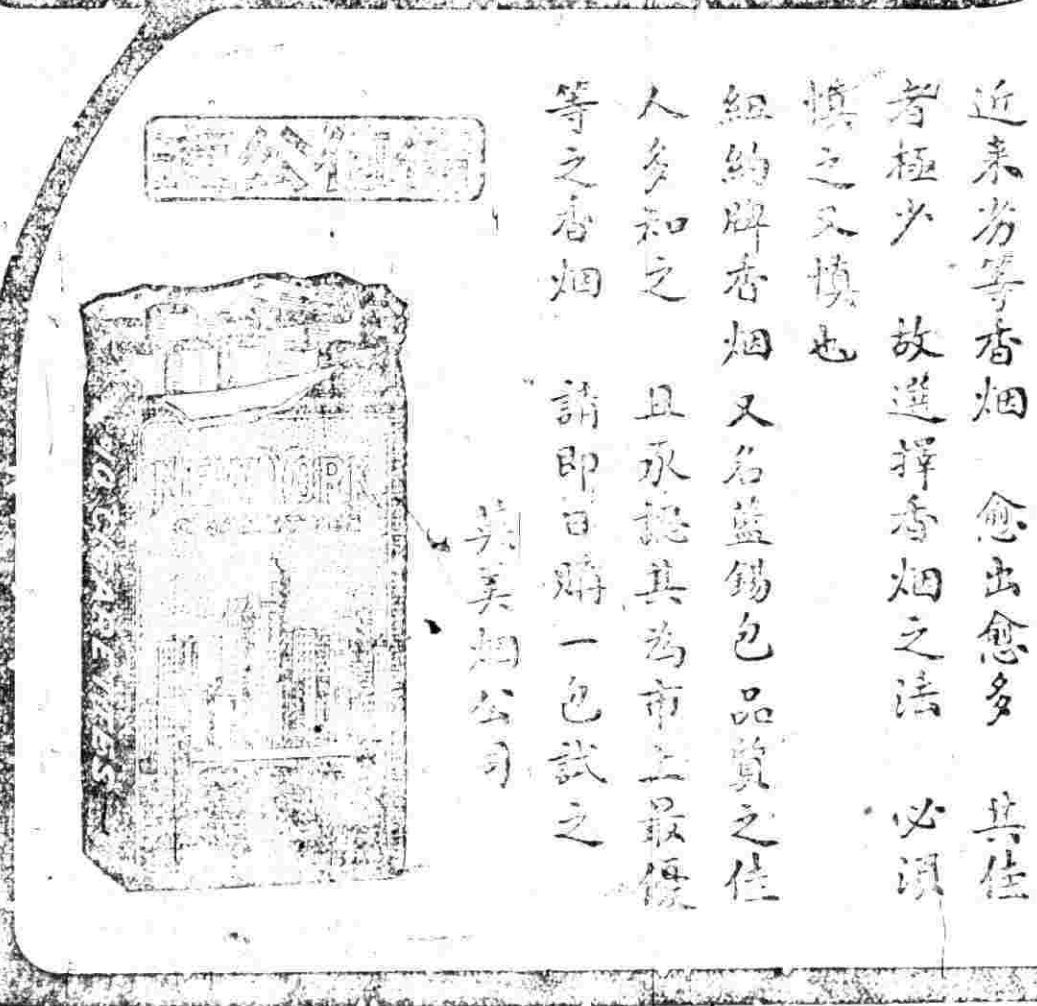 近来劣等香烟 愈出愈多 其佳
者極少 故選擇香烟之法 必須
慎之又慎也
紐約牌香烟又名藍錫包品質之佳
人多知之 且承認其為市上最優
等之香烟 請即日購一包試之
英美烟公司
NEW YORK
10 CIGARETTES